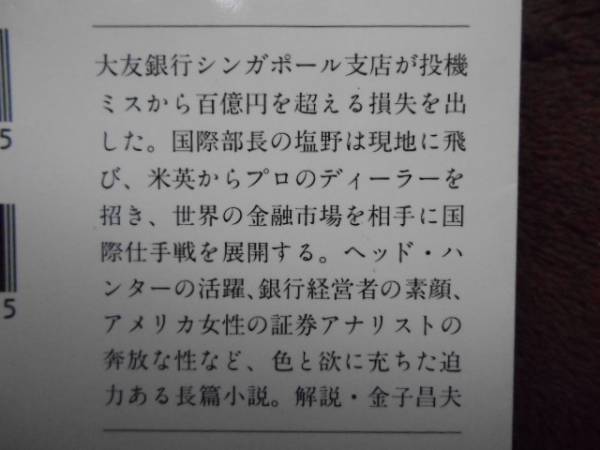 大友銀行シンガポール支店が投機
ミスから百億円を超える損失を出
した。国際部長の塩野は現地に飛
び、米英からプロのディーラーを
招き、世界の金融市場を相手に国
際仕手戦を展開する。ヘッド・ハ
ンターの活躍、銀行経営者の素顔、
アメリカ女性の証券アナリストの
奔放な性など、色と欲に充ちた迫
力ある長篇小説。解説・金子昌夫
5
5